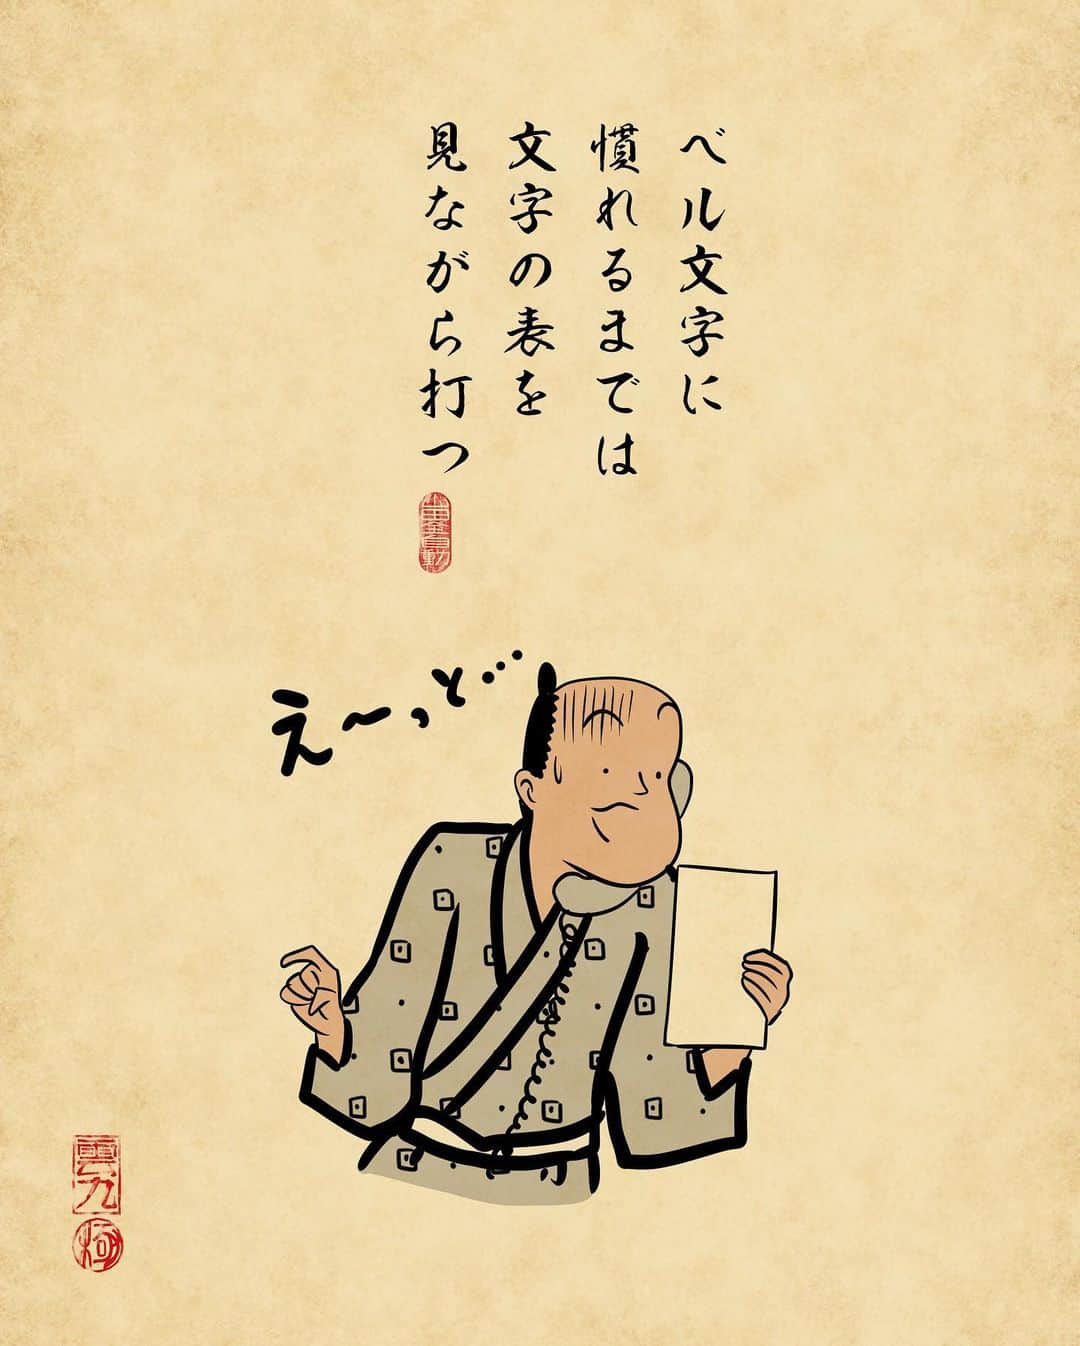 ベル文字に
慣れるまでは
文字の表を
見ながら打つ
え～っと…
雲九
極